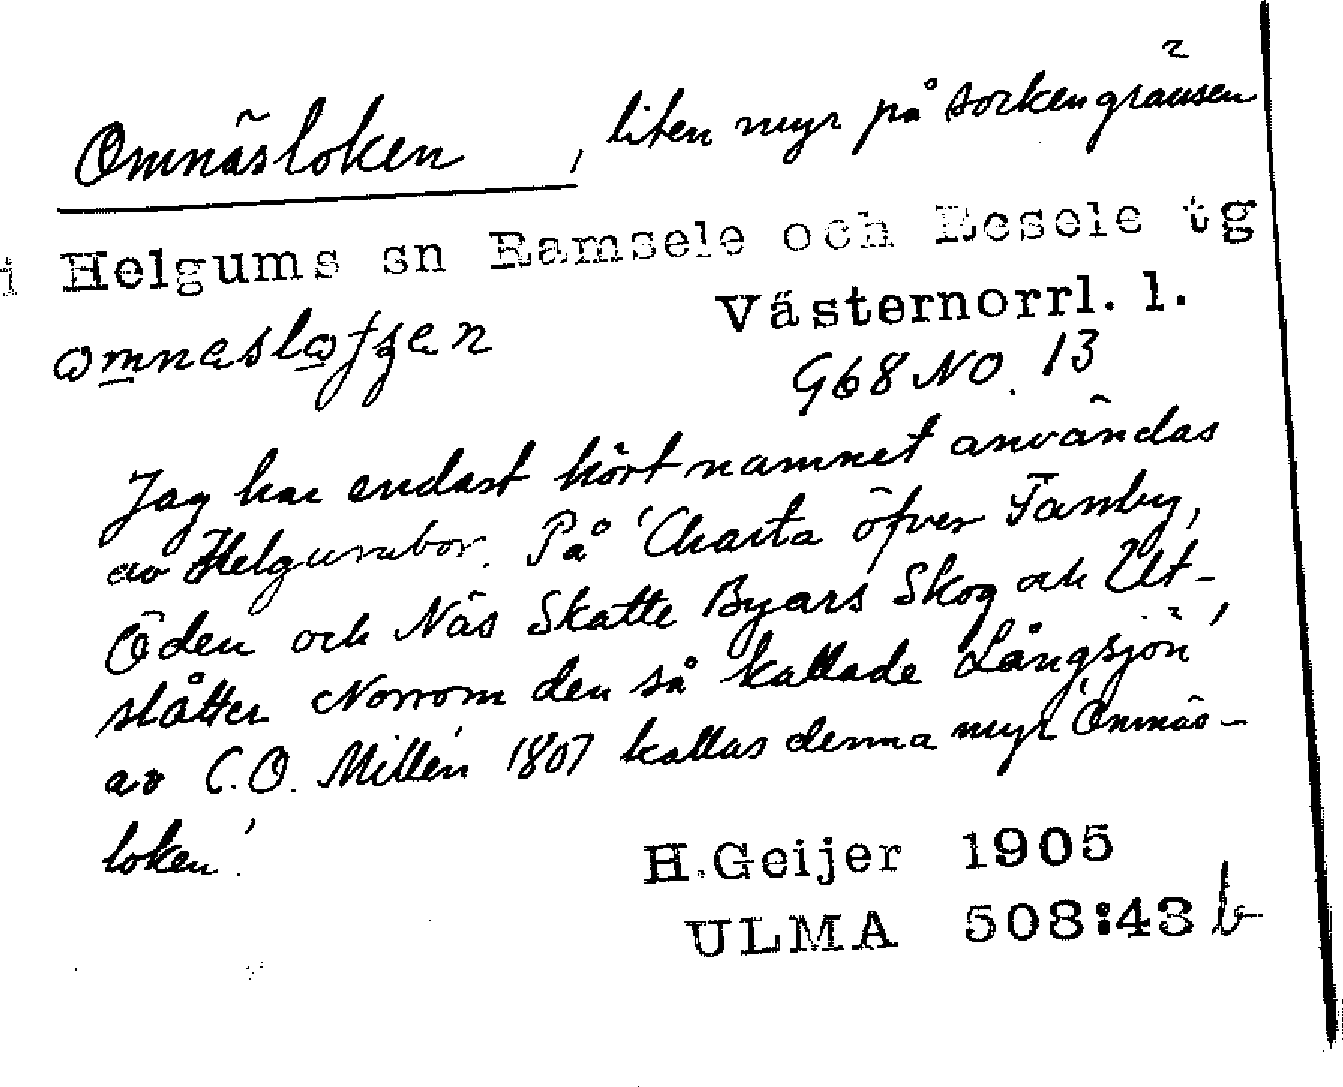 Omnäsloken, liten myr på sockengränsen
i Helgums sn Ramsele och Resele tg
omneslotjen
Västernorrl. l.
G68NO. 13
Jag har endast hört namnet användas
av Helgumsbor. På 'Charta öfver Tamby,
Öden och Näs Skatte Byars Skog och Ut-
slåtter Norrom den så kallade Långsjön'
av C.O. Millén 1807 kallas denna myr 'Omnäs-
loken'.
H.Geijer 1905
ULMA 508:43 b